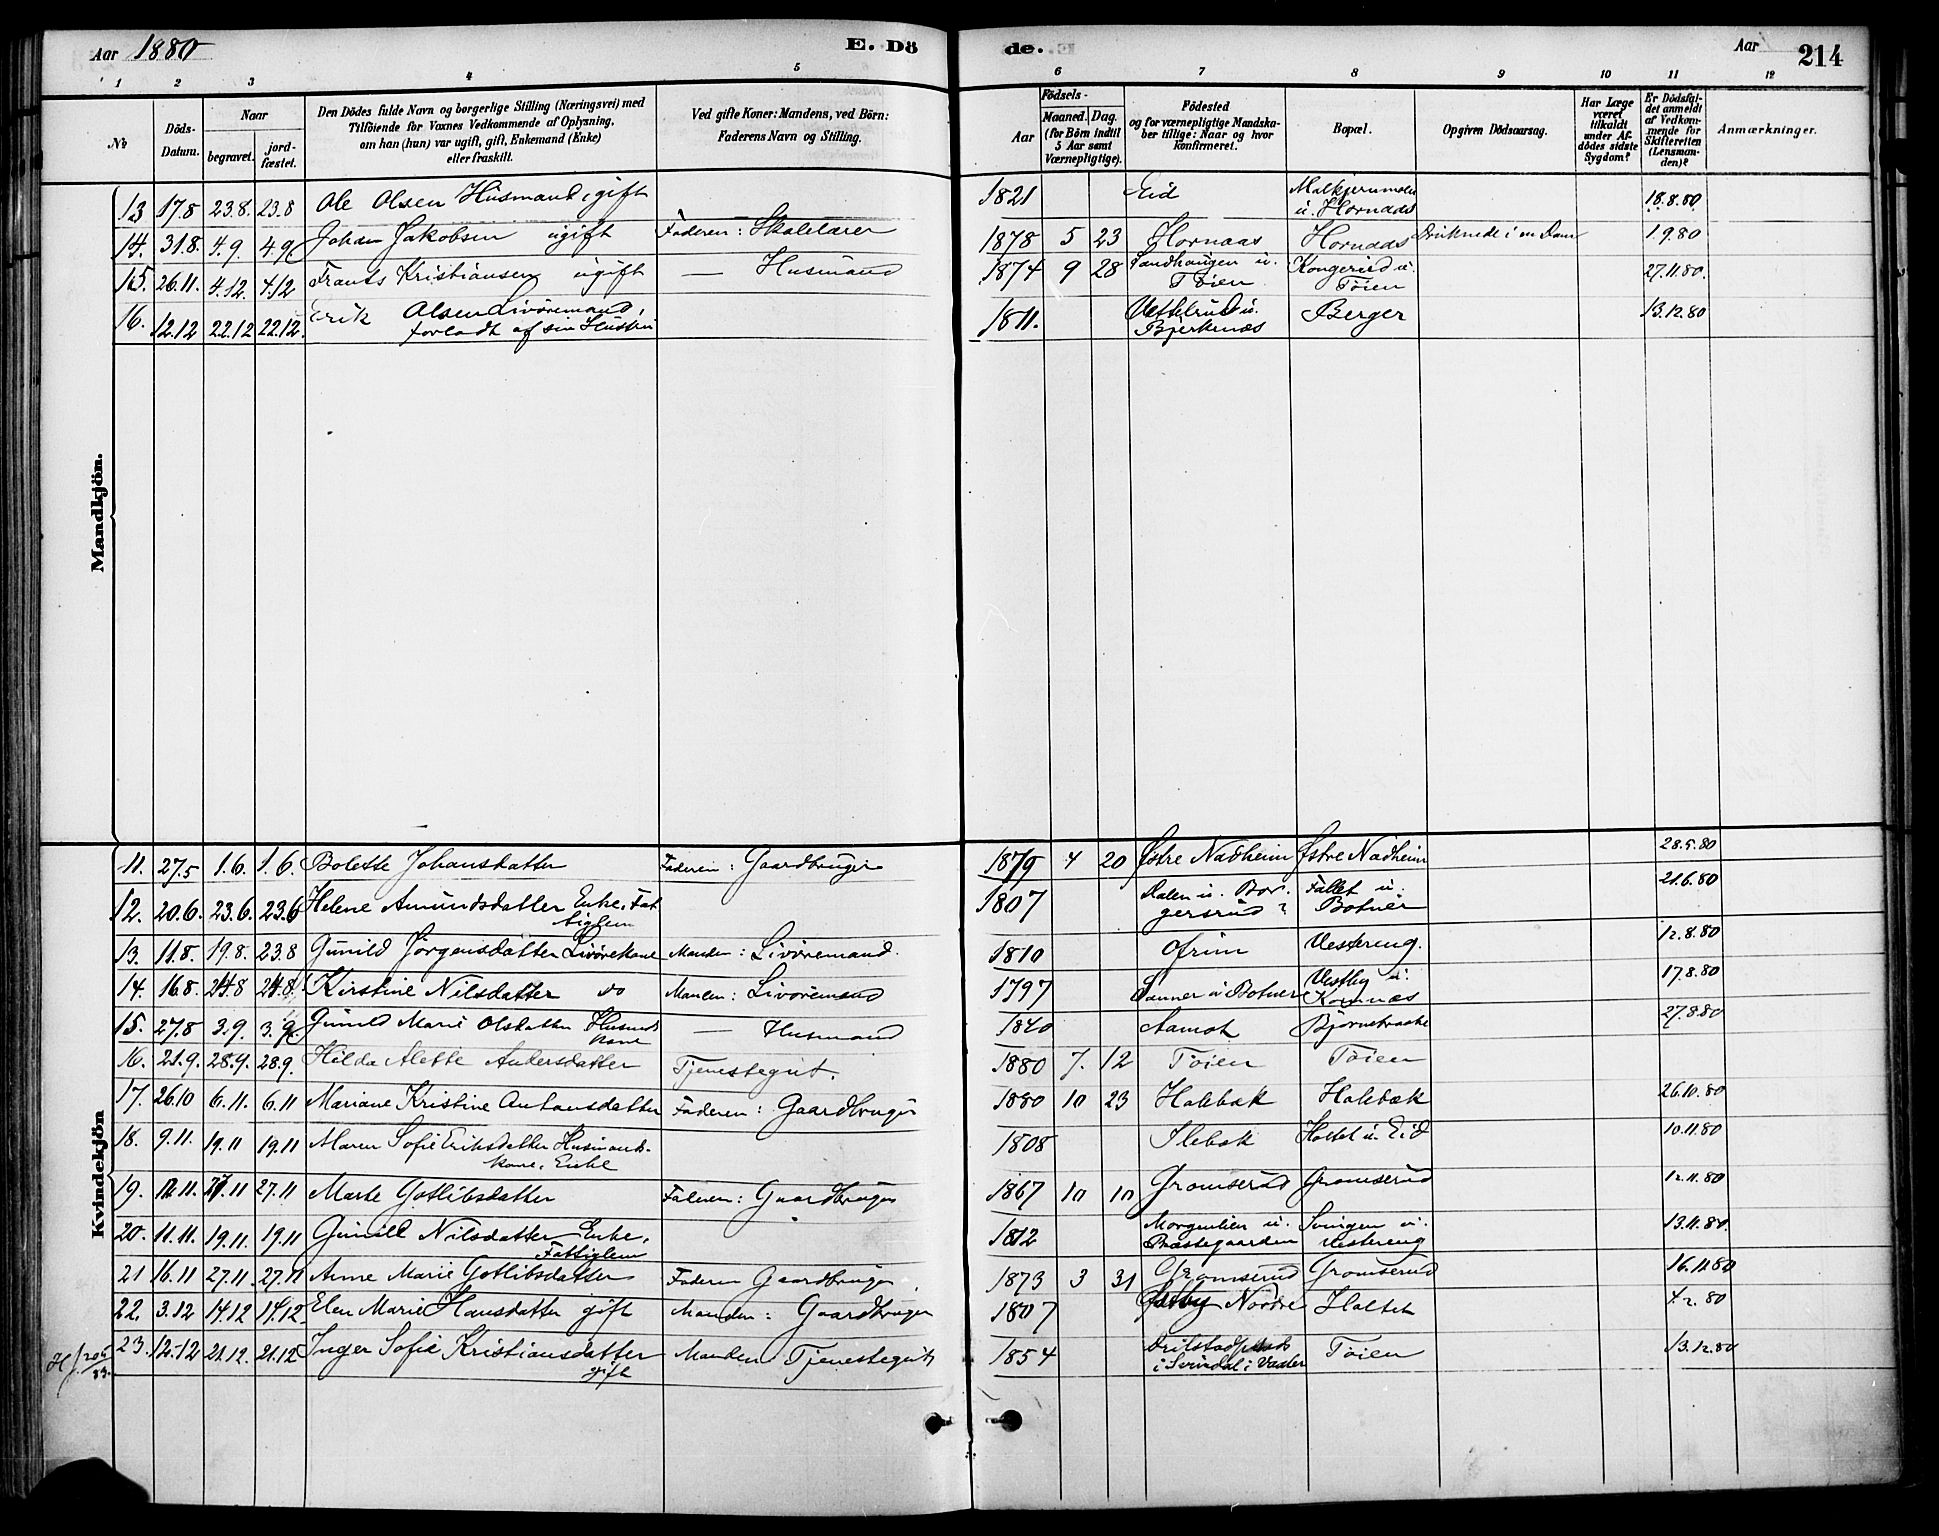 Aar 1880 E. Dö de. Aar 214
1 2 3 4 5 6 7 8 9 10 11 12
№ Döds-Datum. Naar begravet. jord-fæstet. Den Dödes fulde Navn og borgerlige Stilling (Næringsvei) med Tilföiende for Voxnes Vedkommende af Oplysning, om han (hun) var ugift, gift, Enkemand (Enke) eller fraskilt. Ved gifte Koner: Mandens, ved Börn: Faderens Navn og Stilling. Födsels- Aar Maaned. Dag. (for Börn indtil 5 Aar samt Værnepligtige). Födested og for værnepligtige Mandskaber tillige: Naar og hvor konfirmeret. Bopæl. Opgiven Dödsaarsag. Har Læge været tilkaldt under Afdödes sidste Sygdom? Er Dödsfaldet anmeldt af Vedkommende for Skifteretten (Lensmanden)? Anmærkninger.
Mandkjön.
13 17.8 23.8. 23.8 Ole Olsen Husmand, gift 1821 Eid u. Hornaas 18.8.80
14. 31.8. 4.9. 4.9. Johan Jakobsen ugift Faderen: Skolelærer 1878 5 23 Hornaas Hornaas Druknede i en Dam 1.9.80
15. 26.11. 4.12. 4.12 Frants Kristiansen ugift — Husmand 1874 9 28 Sandhaugen u. Töien Kongerud u. Töien 27.11.80.
16. 12.12 22.12 22.12. Erik Olsen Livöremand, forladt af sin Hustru 1811. Vettelrud u. Bjerkenæs Berger 13.12.80
Kvindekjön
11. 27.5 1.6. 1.6. Bolette Johansdatter Faderen: Gaardbruger 1879 4 20 Østre Nadheim Østre Nadheim 28.5.80
12. 20.6. 23.6. 23.6 Helene Amundsdatter Enke, Fattiglem 1807 Dalen u. Borgersrud? Fallet u. Botner 21.6.80
13. 11.8. 19.8. 23.8 Gunild Jørgensdatter Livörekone Manden: Livöremand. 1810 Ofrim Vestreng. 12.8.80
14. 16.8. 24.8 24.8. Kirstine Nilsdatter do Manden: Livöremand 1797 Sanner u Botner Vestby u. Komnæs 17.8.80
15. 27.8 3.9. 3.9. Gunild Marie Olsdatter Husmandskone — Husmand 1840 Aamot Bjørnebraate 27.8.80
16. 21.9. 28.9. 28.9. Hilda Alette Andersdatter Tjenestegut. 1880 7. 12 Töien Töien
17. 26.10 6.11. 6.11 Mariane Kristine Antonsdatter Faderen: Gaardbruger 1880 10 23 Holebæk Holebæk 26.10.80
18. 9.11. 19.11 19.11 Maren Sofie Eriksdatter Husmandskone, Enke 1808 Ilebæk Holtet u. Eid 10.11.80
19. 12.11. 27.11 27.11 Marte Gotlibsdatter Faderen: Gaardbruger 1867 10 10 Gromserud Gromserud 12.11.80
20. 11.11. 19.11. 19.11 Gunild Nilsdatter Enke, Fattiglem 1812 Morgenlien u. Præstegaarden Svingen u. Vestreng 13.11.80.
21 16.11 27.11. 27.11 Anne Marie Gotlibsdatter Faderen Gaardbruger 1873 3 31 Gromserud Gromserud 16.11.80
22. 3.12 14.12 14.12. Elen Marie Hansdatter gift Manden: Gaardbruger 1807 Østby Nordre Holtet 4.2.80
23. 12.12 21.12. 21.12 Inger Sofie Kristiansdatter gift Manden Tjenestegut 1854 i Svindal i Vaaler Töien 13.12.80